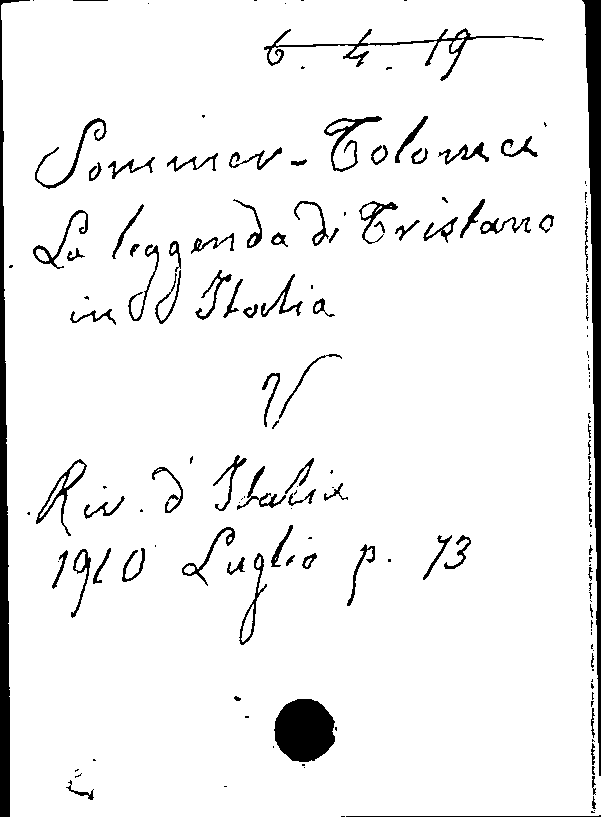 6. 4. 19
Sommer-Tolomei
La leggenda di Tristano
in Italia
V
Riv. d'Italia
1910 Luglio p. 73